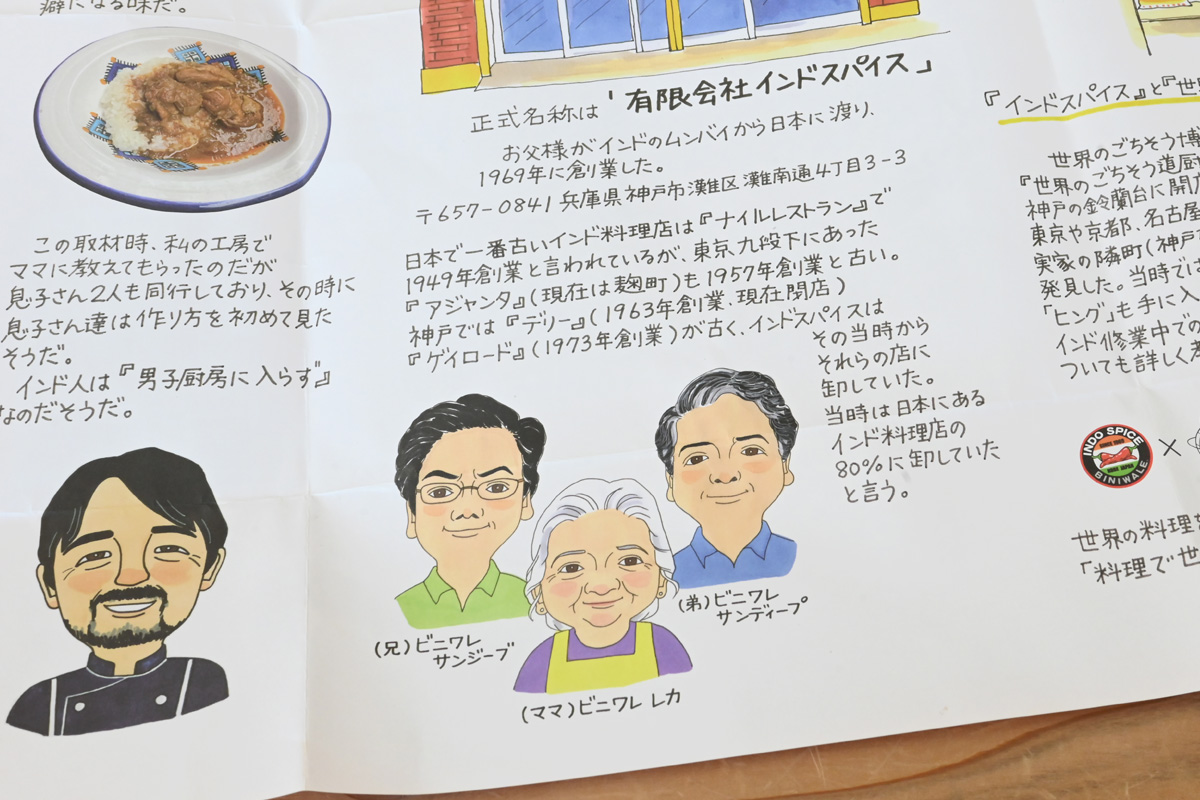 癖になる味だ。
この取材時、私の工房で
ママに教えてもらったのだが
息子さん2人も同行しており、その時に
息子さん達は作り方を初めて見た
そうだ。
インド人は『男子厨房に入らず』
なのだそうだ。
正式名称は「有限会社インドスパイス」
お父様がインドのムンバイから日本に渡り、
1969年に創業した。
〒657-0841 兵庫県神戸市灘区灘南通4丁目3-3
日本で一番古いインド料理店は『ナイルレストラン』で
1949年創業と言われているが、東京、九段下にあった
『アジャンタ』(現在は麹町)も1957年創業と古い。
神戸では『デリー』(1963年創業、現在閉店)
『ゲイロード』(1973年創業)が古く、インドスパイスは
その当時から
それらの店に
卸していた。
当時は日本にある
インド料理店の
80%に卸していた
と言う。
(兄)ビニワレ
サンジーブ
(ママ)ビニワレ レカ
(弟)ビニワレ
サンディープ
『インドスパイス』と『世
世界のごちそう博
『世界のごちそう道厨
神戸の鈴蘭台に開店
東京や京都、名古屋
実家の隣町(神戸市
発見した。当時では
「ヒング」も手に入
インド修業中での
ついても詳しく
INDO SPICE
BINIWALE
×
世界の料理
「料理で世